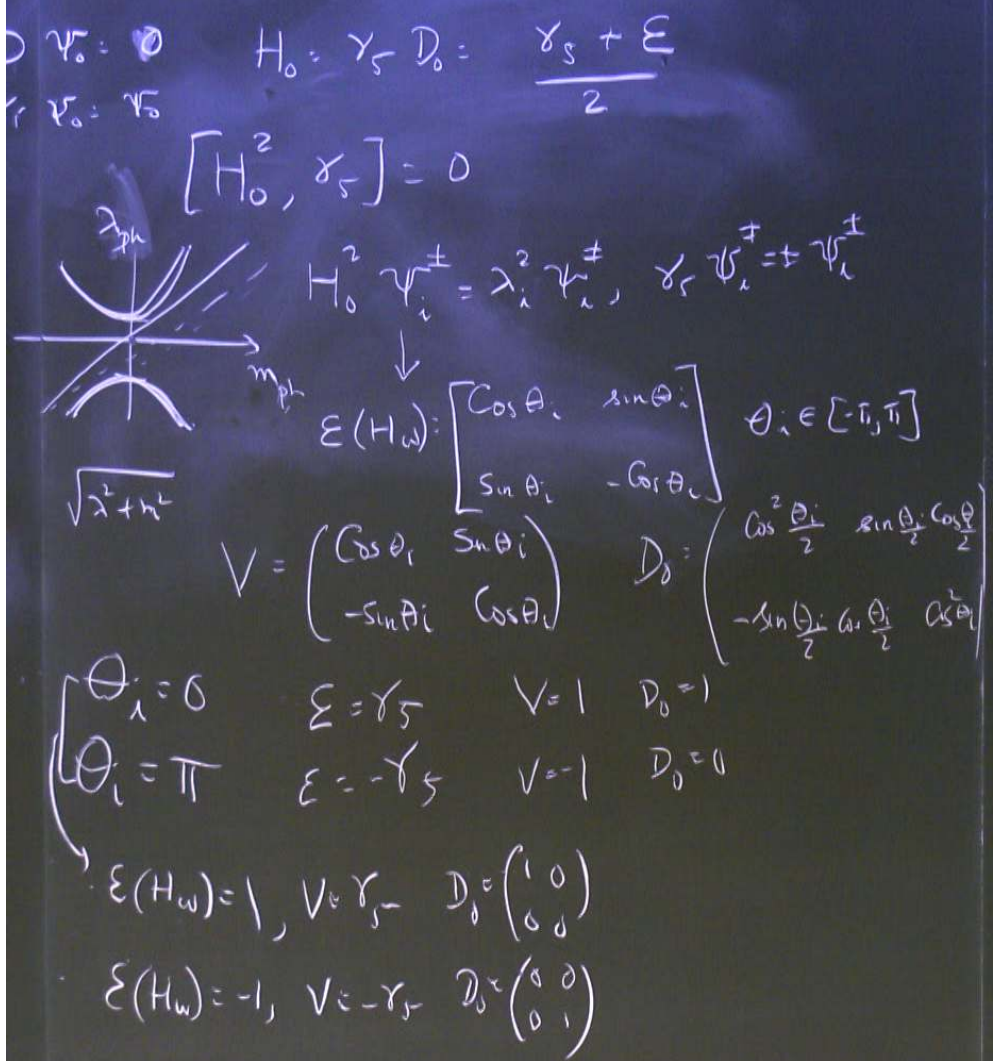 D ψ₀ = 0 H₀ = γ₅ D₀ = (γ₅ + ε)/2
ψ₀ = ψ₀
[H₀², γ₅] = 0
λ_ph
H₀² ψᵢ^± = λᵢ² ψᵢ^±, γ₅ ψᵢ^± = ± ψᵢ^±
m_ph
↓
ε(H_w) = [Cos θᵢ sin θᵢ
Sin θᵢ -Cos θᵢ] θᵢ ∈ [-π, π]
√(λ²+m²)
V = (Cos θᵢ Sin θᵢ
-Sin θᵢ Cos θᵢ) D₀ = (Cos² θᵢ/2 sin θᵢ/2 Cos θ/2
-Sin θᵢ/2 Cos θᵢ/2 Cos² θᵢ)
θᵢ = 0 ε = γ₅ V = 1 D₀ = 1
θᵢ = π ε = -γ₅ V = -1 D₀ = 0
ε(H_w) = 1, V = γ₅ D₀ = (1 0
0 0)
ε(H_w) = -1, V = -γ₅ D₀ = (0 0
0 1)